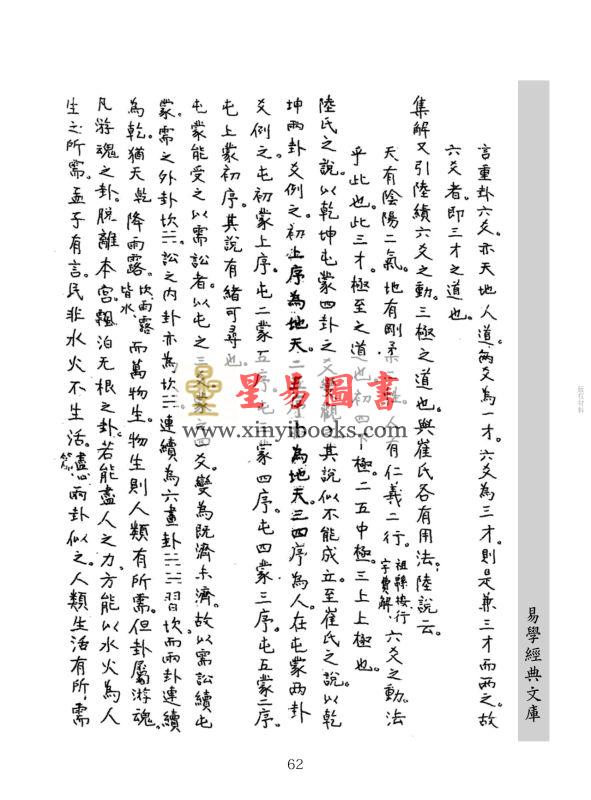 言重卦六爻。亦天地人道。兩爻為一才。六爻為三才。則是兼三才而兩之。故
六爻者。即三才之道也。
集解又引陸績六爻之動。三極之道也。與崔氏各有用法。陸說云。
天有陰陽二氣。地有剛柔二性。人有仁義二行。祖縣按行字費解。六爻之動。法
乎此也。此三才。極至之道也。初四下極。二五中極。三上上極也。
陸氏之說。以乾坤屯蒙四卦之爻 觀 其說似不能成立。至崔氏之說。以乾
坤兩卦爻例之。初上序為地天。二五序 為地天。三四序為人。在屯蒙兩卦
爻例之。屯初蒙上序。屯二蒙五序。屯三蒙四序。屯四蒙三序。屯五蒙二序。
屯上蒙初序。其說有緒可尋也。
屯蒙能受之以需訟者。以屯之三爻蒙之四爻變為既濟未濟。故以需訟續屯
蒙。需之外卦坎☵。訟之內卦亦為坎☵。連續為六畫卦☵☵習坎。而兩卦連續
為乾。猶天乾降雨露。坎雨露皆水。而萬物生。物生則人類有所需。但卦屬游魂。
凡游魂之卦。脫離本宮。飄泊无根之卦。若能盡人之力。方能以水火為人
生之所需。孟子有言。民非水火不生活。盡心篇。兩卦似之。人類生活有所需
星易圖書
www.xinyibooks.com
易學經典文庫
版权材料
62